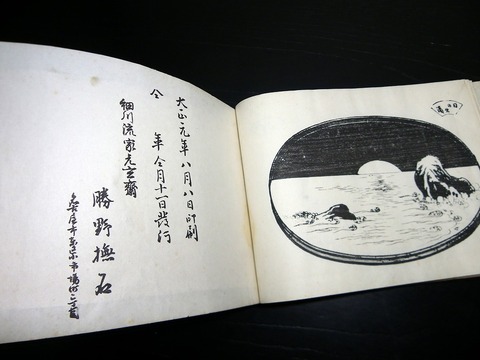 大正元年八月八日印刷
仝　年仝月十一日発行
細川流家元玄斎
勝野撫石
名古屋市